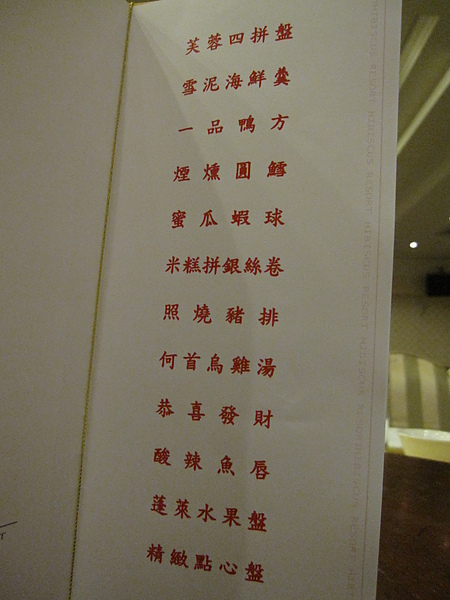 芙蓉四拼盤
雪泥海鮮羹
一品鴨方
煙燻圓鱈
蜜瓜蝦球
米糕拼銀絲卷
照燒豬排
何首烏雞湯
恭喜發財
酸辣魚唇
蓬萊水果盤
精緻點心盤